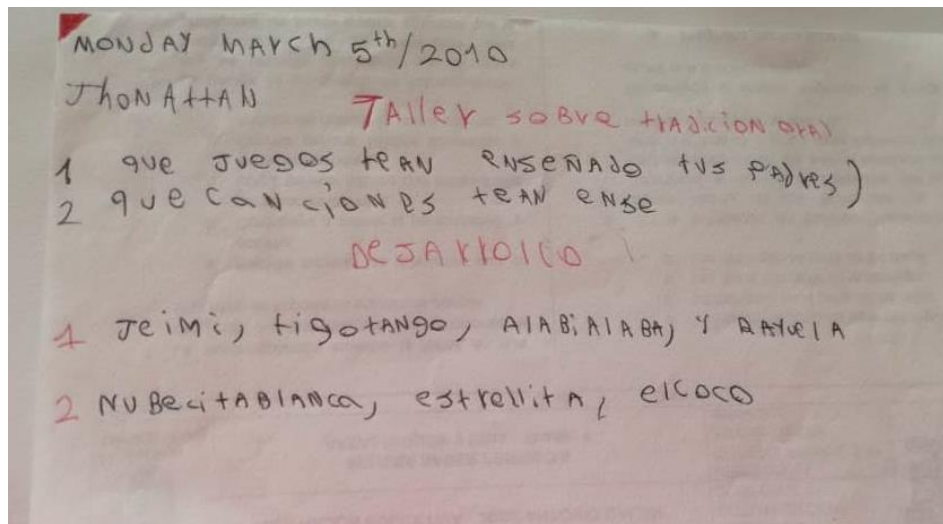 MONDAY MARch 5th/2010
JhONAttAN
TAller soBre trAdicioN orAl
1 que Juegos teAN eNseÑAdo tus pAdres)
2 que caNcioNes teAN eNse
DeSArrollo
1 Jeimi, tigotANgo, AlABiAlABA, Y RAYuelA
2 NuBecitABlANca, estrellitA, elcoco